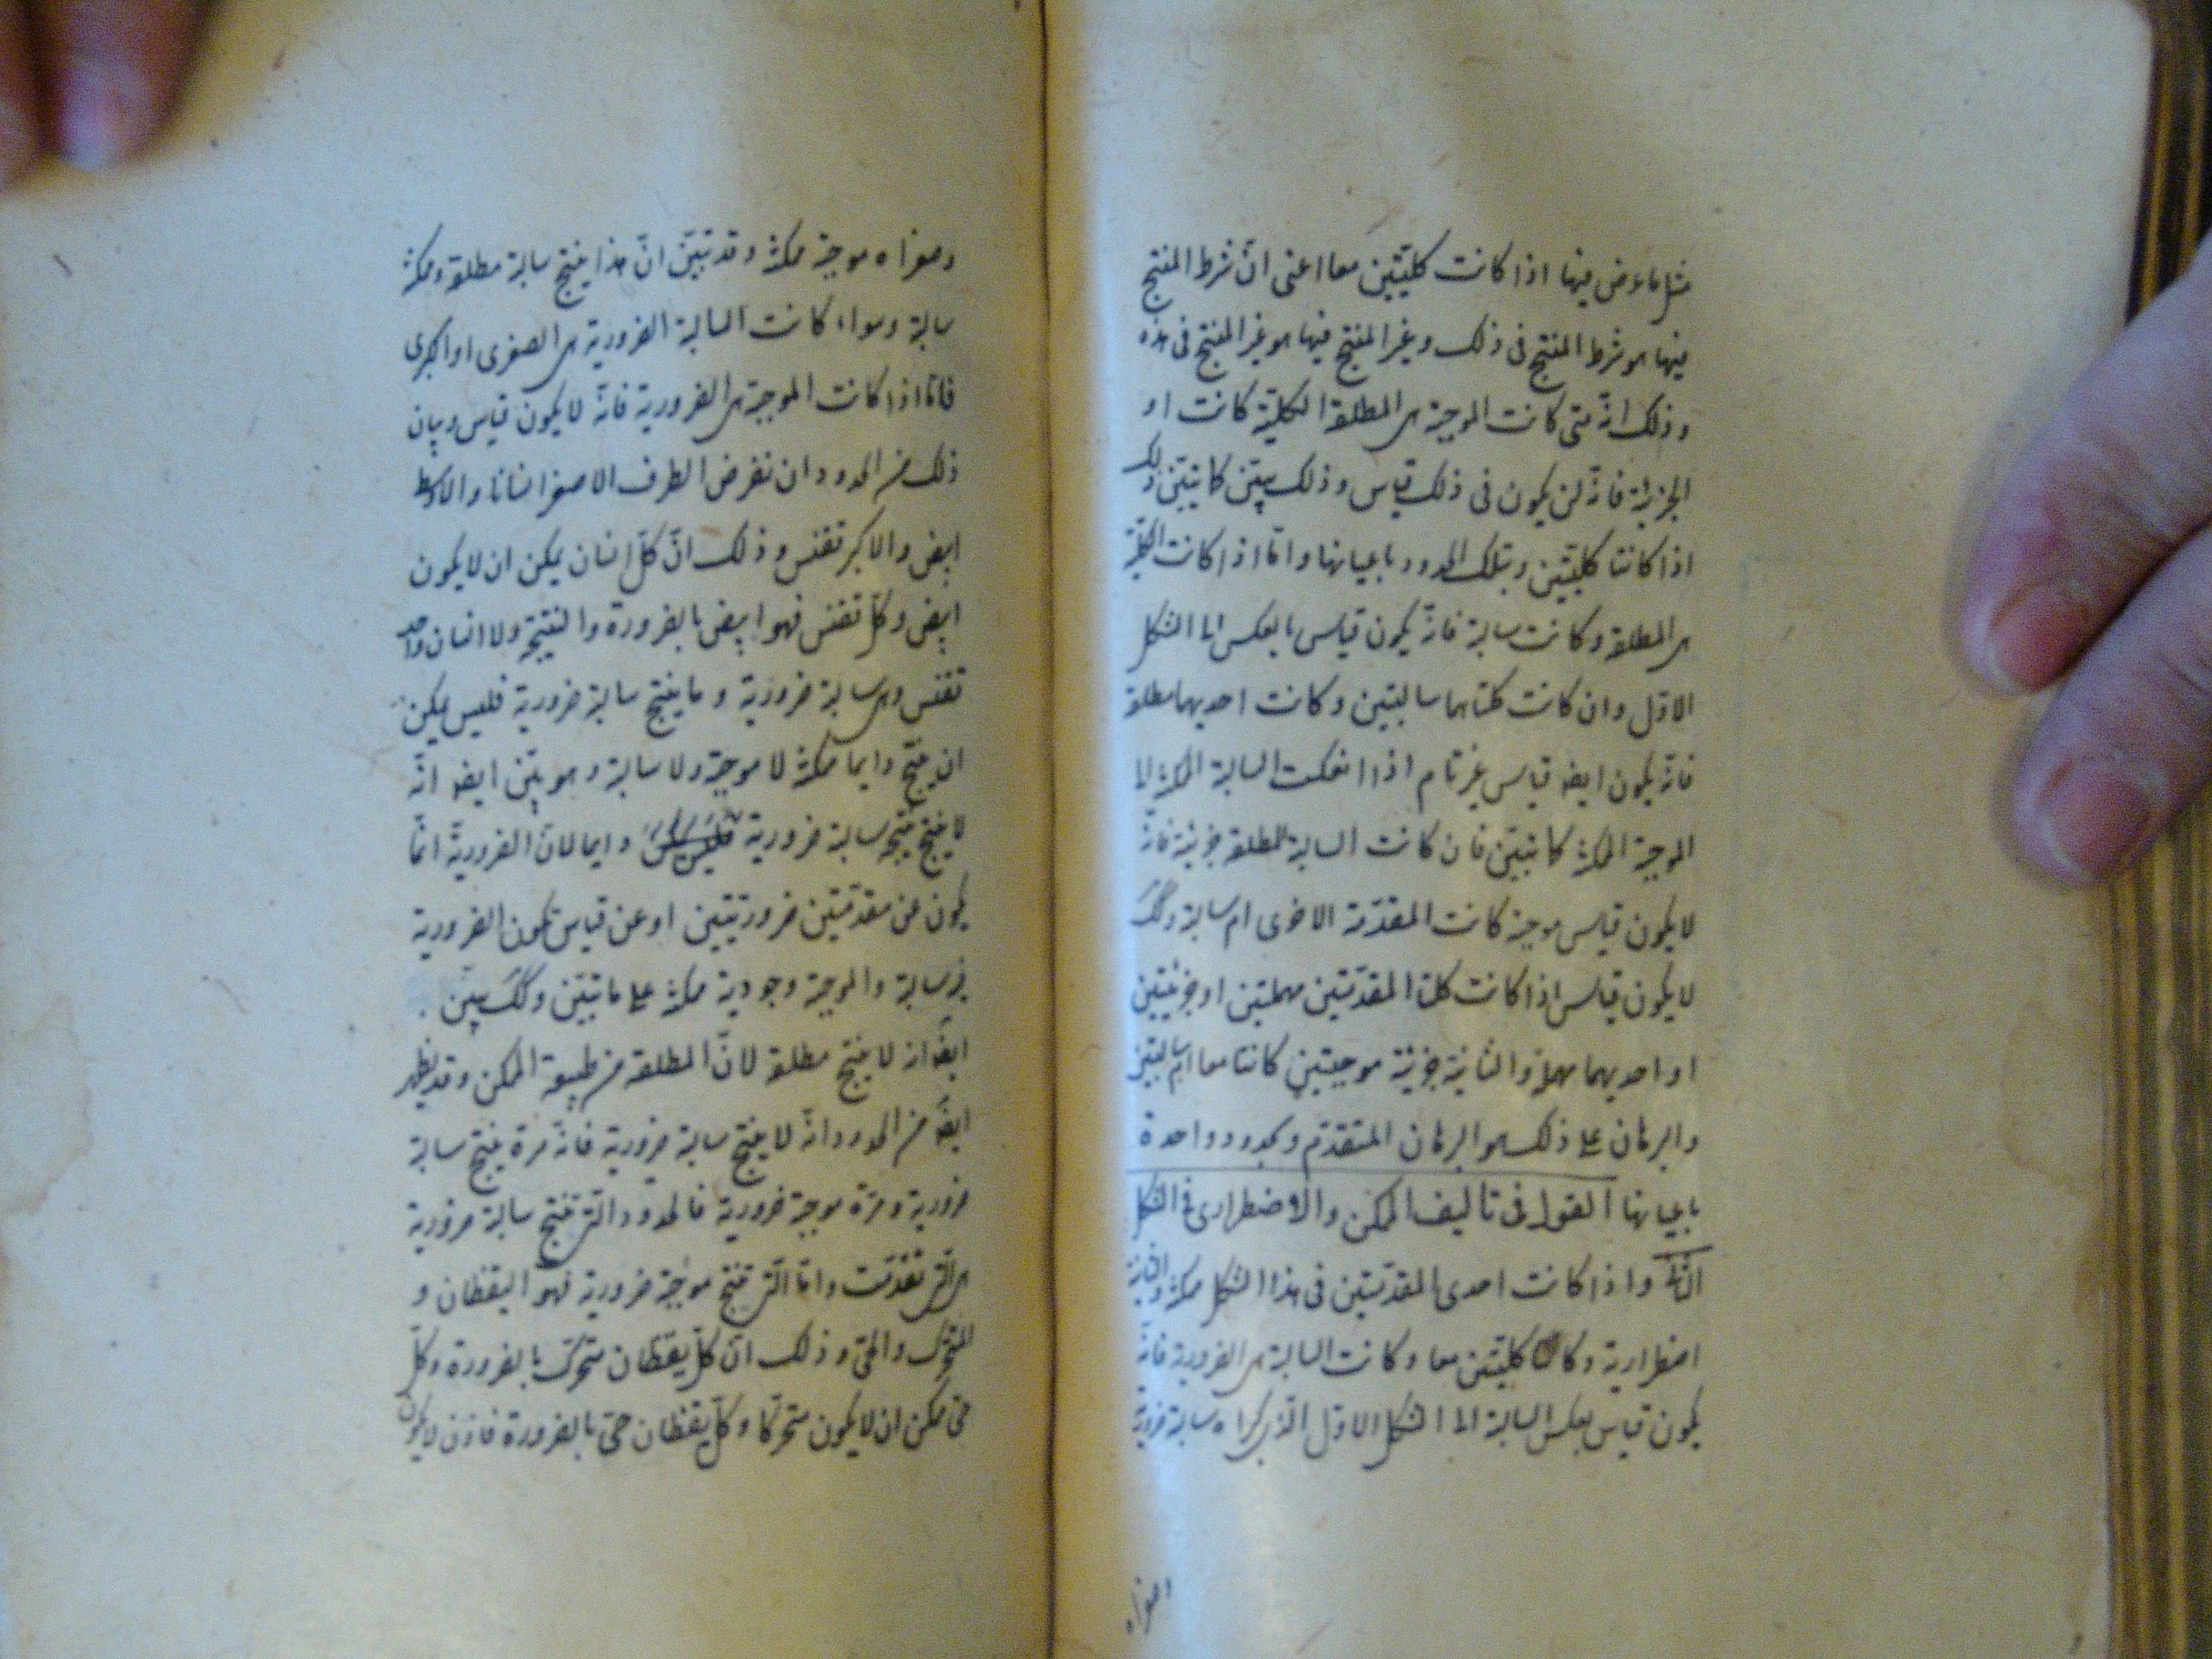 مثل ما عرض فيها اذا كانت كليتين معا اعنى انّ شرط المنتج
فيها هو شرط المنتج فى ذلك وغير المنتج فيها هو غير المنتج فى هذه
وذلك انّه متى كانت الموجبة هى المطلقة الكليّة كانت او
الجزئية فانّه لن يكون فى ذلك قياس وذلك يبيّن كما تبيّن ذلك
اذا كانتا كليّتين وبتلك الحدود باعيانها وامّا اذا كانت الكليّة
هى المطلقة وكانت سالبة فانّه يكون قياس بالعكس الى الشكل
الاوّل وان كانت كلتاهما سالبتين وكانت احديهما مطلقة
فانّه يكون ايضا قياس غير تام اذا انعكست السالبة الممكنة الى
الموجبة الممكنة كما تبيّن فان كانت السالبة المطلقة جزئية فانّه
لا يكون قياس موجبة كانت المقدّمة الاخرى ام سالبة وكك
لا يكون قياس اذا كانت كلتا المقدّمتين مهملتين او جزئيتين
او احديهما مهملة والثانية جزئية موجبتين كانتا معا ام سالبتين
والبرهان على ذلك هو البرهان المتقدّم وبحدود واحدة
باعيانها القول فى تاليف الممكن والاضطرارى فى الشكل
الثانى واذا كانت احدى المقدّمتين فى هذا الشكل ممكنة والثانية
اضطرارية وكانتا كليتين معا وكانت السالبة هى الضرورية فانّه
يكون قياس بعكس السالبة الى الشكل الاوّل الّذى كبراه سالبة ضرورية
وصغراه
وصغراه موجبة ممكنة وقد تبيّن انّ هذا ينتج سالبة مطلقة وممكنة
سالبة وسواء كانت السالبة الضرورية هى الصغرى او الكبرى
فامّا اذا كانت الموجبة هى الضرورية فانّه لا يكون قياس وبيان
ذلك من الحدود ان نفرض الطرف الاصغر انسانا والاوسط
ابيض والاكبر تقنس وذلك انّ كلّ انسان يمكن ان لا يكون
ابيض وكلّ تقنس فهو ابيض بالضرورة والنتيجة ولا انسان واحد
تقنس وهى سالبة ضروريّة وما ينتج سالبة ضرورية فليس يمكن
ان ينتج دايما ممكنة لا موجبة ولا سالبة وهو بيّن ايضا انّه
لا ينتج نتيجة سالبة ضرورية دايما لانّ الضروريّة انّما
يكون عن مقدّمتين ضروريّتين او عن قياس تكون الضرورية
فيه سالبة والموجبة وجودية ممكنة على ما تبيّن وكك يبيّن
ايضا انه لا ينتج مطلقة لانّ المطلقة من طبيعة الممكن وقد يظهر
ايضا من الحدود انّه لا ينتج سالبة ضرورية فانّه مرة ينتج سالبة
ضرورية ومرّة موجبة ضرورية فالحدود الّتى تنتج سالبة ضرورية
هى الّتى تقدّمت وامّا الّتى تنتج موجبة ضرورية فهو اليقظان و
المتحرّك والحىّ وذلك انّ كلّ يقظان متحرّك بالضرورة وكلّ
حىّ ممكن ان لا يكون متحرّكا وكلّ يقظان حىّ بالضرورة فاذن لا يكون